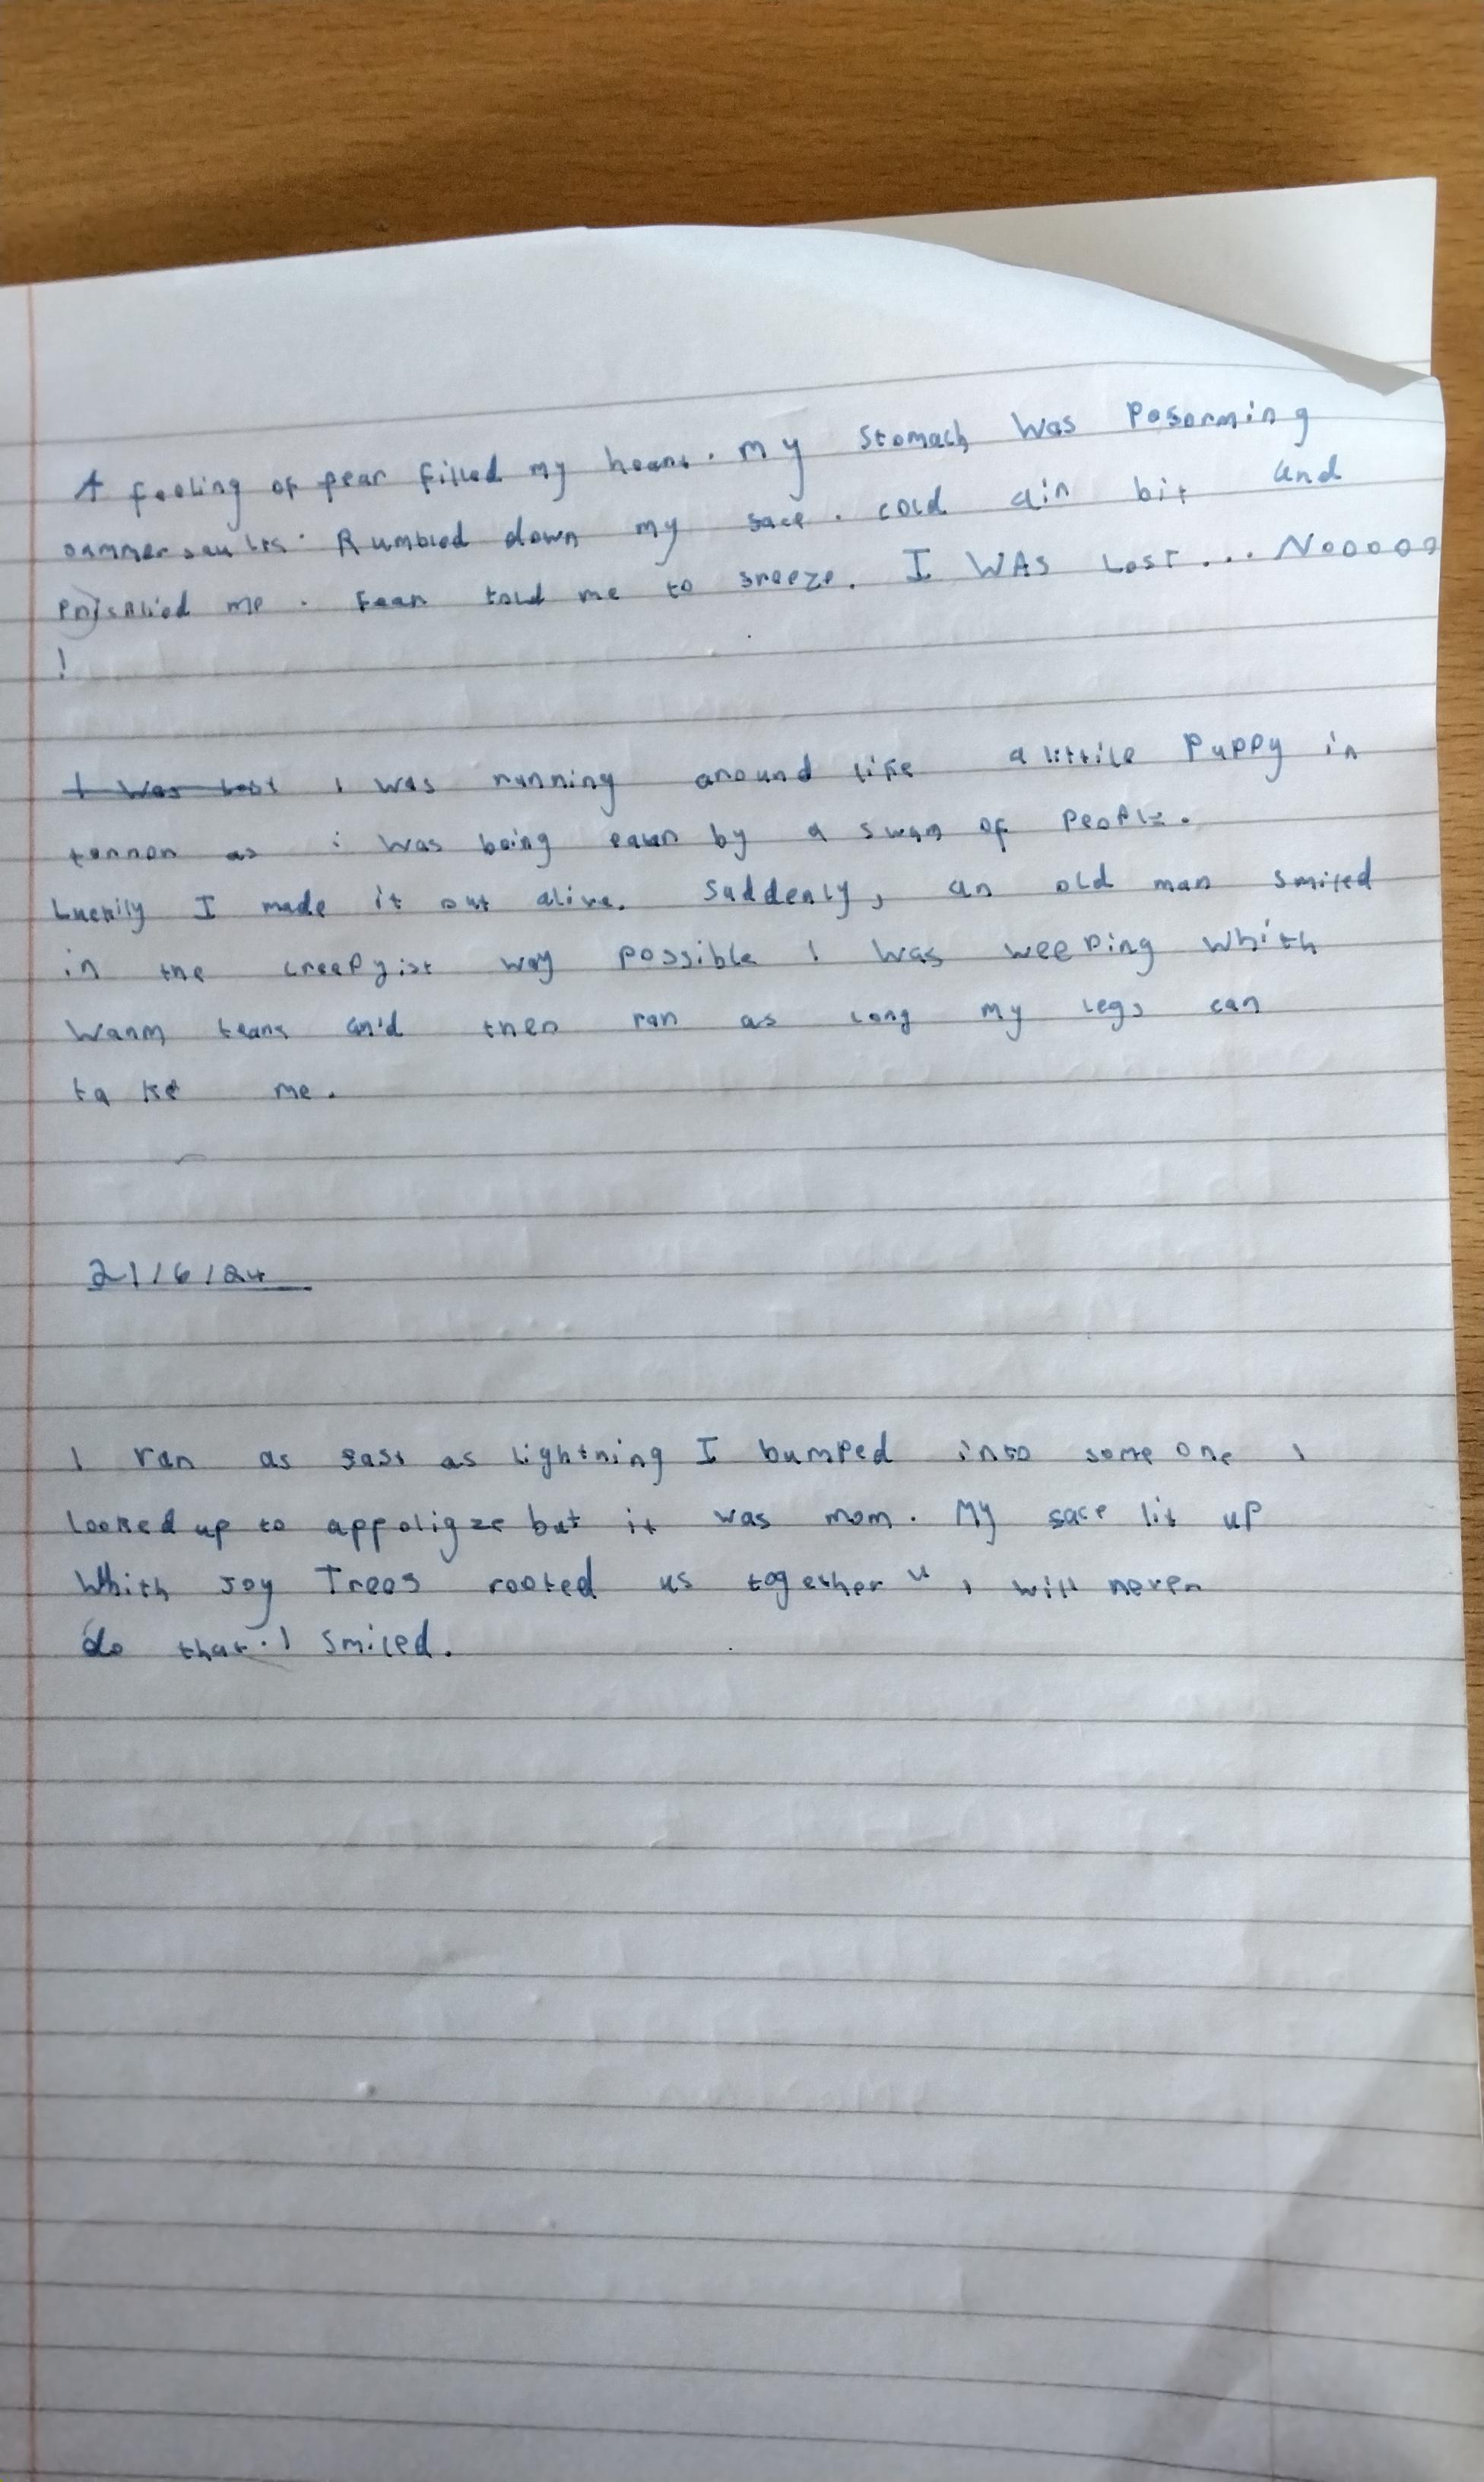 A feeling of fear filled my heart. my stomach was Posorming
sammersaults. Rumbled down my face. cold air bit and
me. Fear told me to freeze. I WAS LOST... Nooooo
!
I was lost I was running around like a littile Puppy in
terror as i was being eaten by a swam of People.
Luckily I made it out alive. Suddenly, an old man smiled
in the creepyist way possible I was weeping whith
warm tears and then ran as long my legs can
take me.
21/6/24
I ran as fast as lightning I bumped into some one I
looked up to appoligze but it was mom. My face lit up
whith Joy Trees rooted us together " I will never
do that. I smiled.